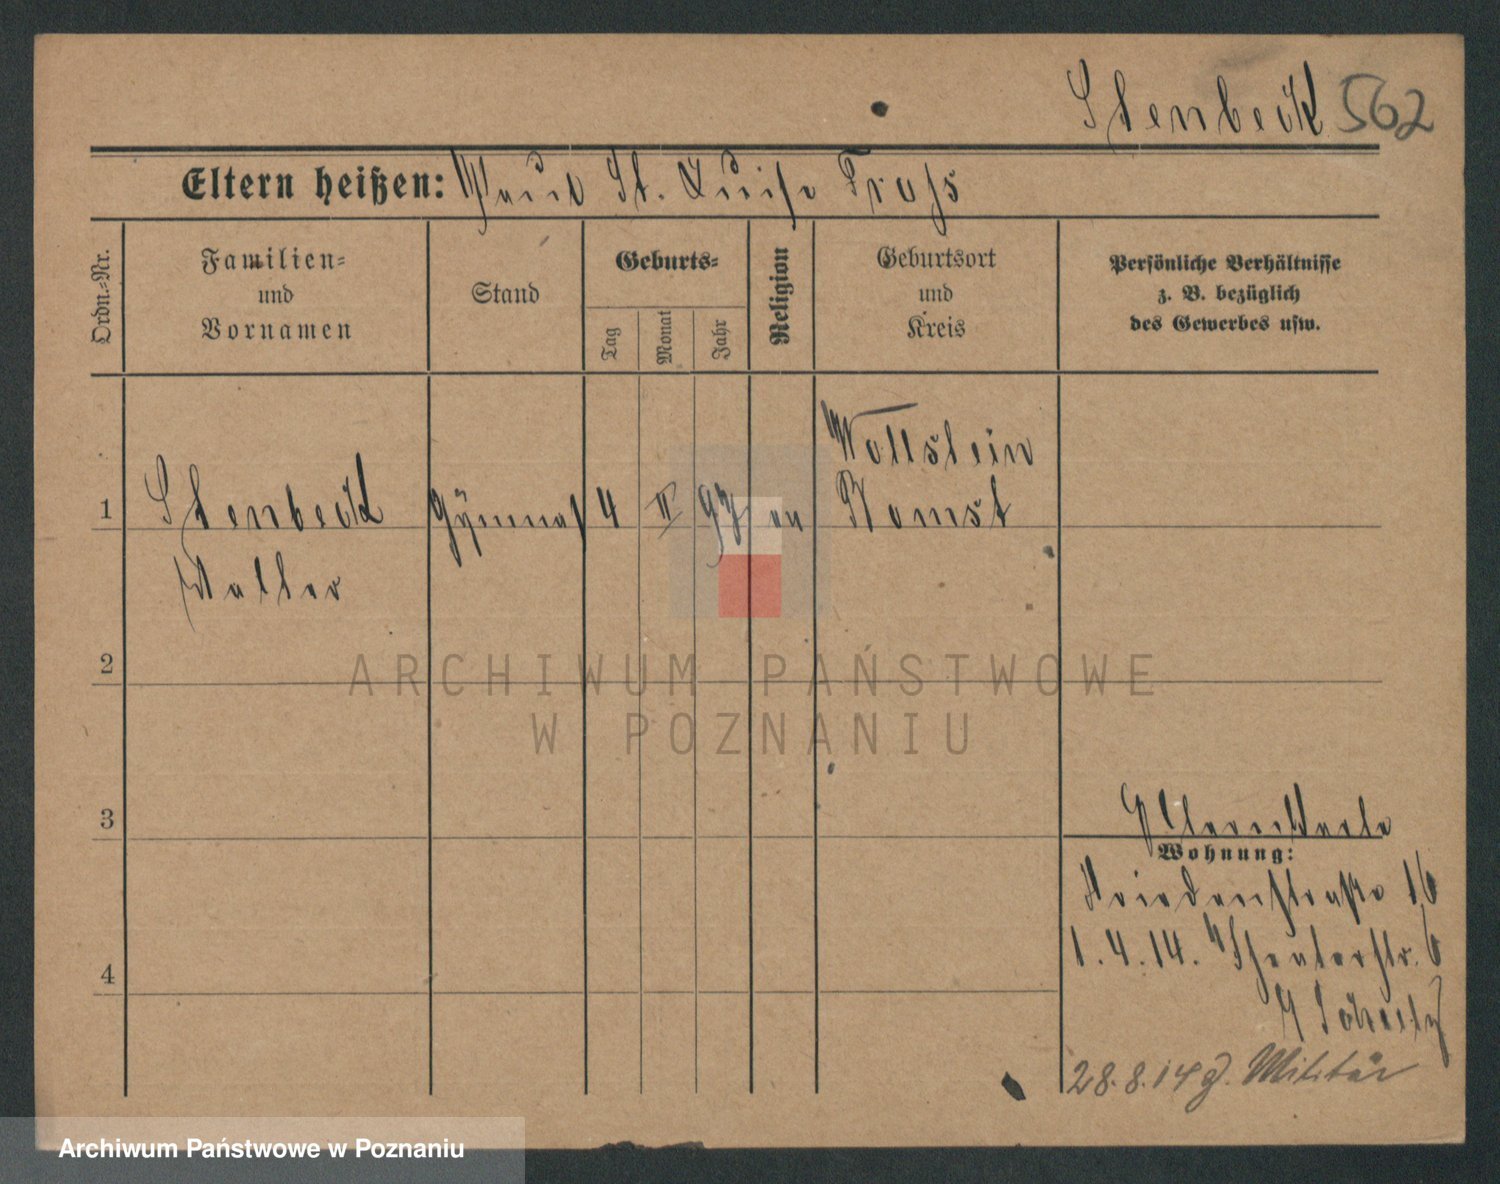 Stenbeck 562
Eltern heißen: Paul St. Luise Troß
Ordn.-Nr.
Familien-
und
Vornamen
Stand
Geburts-
Tag
Monat
Jahr
Religion
Geburtsort
und
Kreis
Persönliche Verhältnisse
z. B. bezüglich
des Gewerbes usw.
Wollstein
1 Stenbeck Gymnas 4 II 97 ev Bomst
Walter
2
ARCHIWUM PAŃSTWOWE
W POZNANIU
3
Wohnung:
Friedenstraße 16
1.4.14. Theaterstr. 6
4
28.8.14 z. Militär
Archiwum Państwowe w Poznaniu